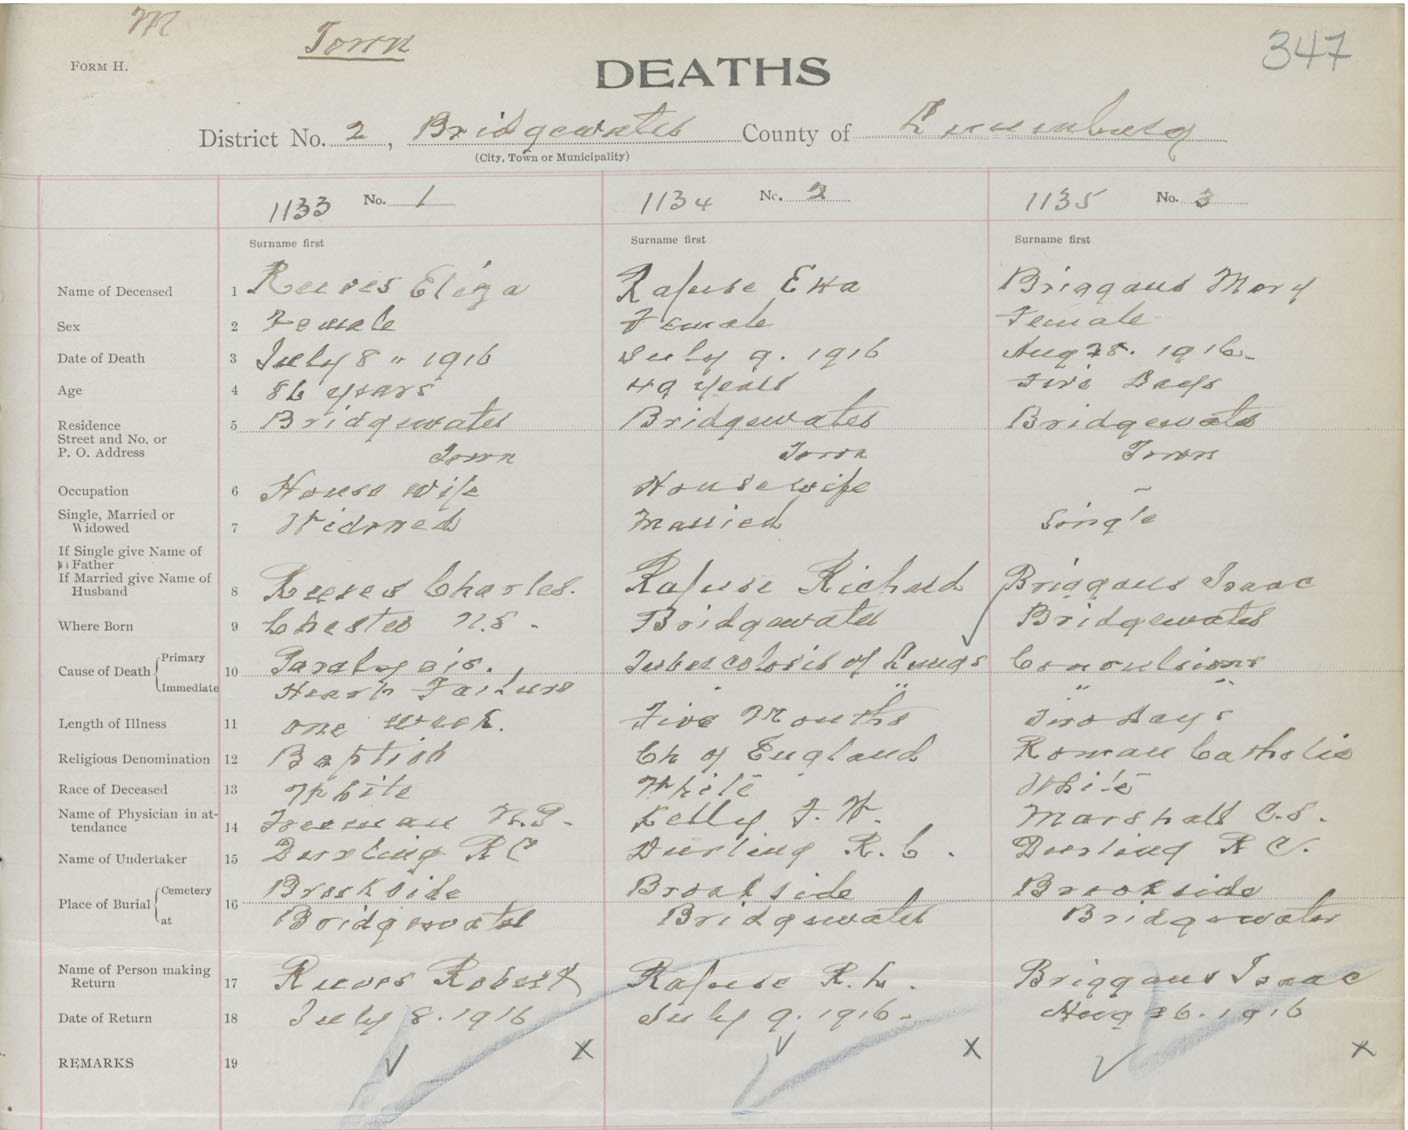 M
Town
347
FORM H.
DEATHS
District No. 2, Bridgewater County of Lunenburg
(City, Town or Municipality)
1133 No. 1 1134 No. 2 1135 No. 3
Surname first Surname first Surname first
Name of Deceased 1 Reeves Eliza Rafuse Ewa Briggans Mary
Sex 2 Female Female Female
Date of Death 3 July 8 " 1916 July 9. 1916 Aug 1916
Age 4 86 years 49 years Five Days
Residence 5 Bridgewater Bridgewater Bridgewater
Street and No. or
P. O. Address Town Town Town
Occupation 6 House wife Housewife –
Single, Married or
Widowed 7 Widowed Married Single
If Single give Name of
Father
If Married give Name of
Husband 8 Reeves Charles. Rafuse Richard Briggans Isaac
Where Born 9 Chester N.S. Bridgewater Bridgewater
Cause of Death Primary 10 Paralysis. Tubercolosis of Lungs Convulsions
Immediate Heart Failure " " " "
Length of Illness 11 one week. Five Months Two Days
Religious Denomination 12 Baptist Ch of England Roman Catholic
Race of Deceased 13 White White White
Name of Physician in at-
tendance 14 Freeman Kelly F. W. Marshall C.S.
Name of Undertaker 15 Durling R C Durling R. C. Durling R C.
Place of Burial Cemetery 16 Brookside Brookside Brookside
at Bridgewater Bridgewater Bridgewater
Name of Person making
Return 17 Reeves Robert Rafuse R. Briggans Isaac
Date of Return 18 July 8. 1916 July 9. 1916. Aug 26. 1916
REMARKS 19 X X X